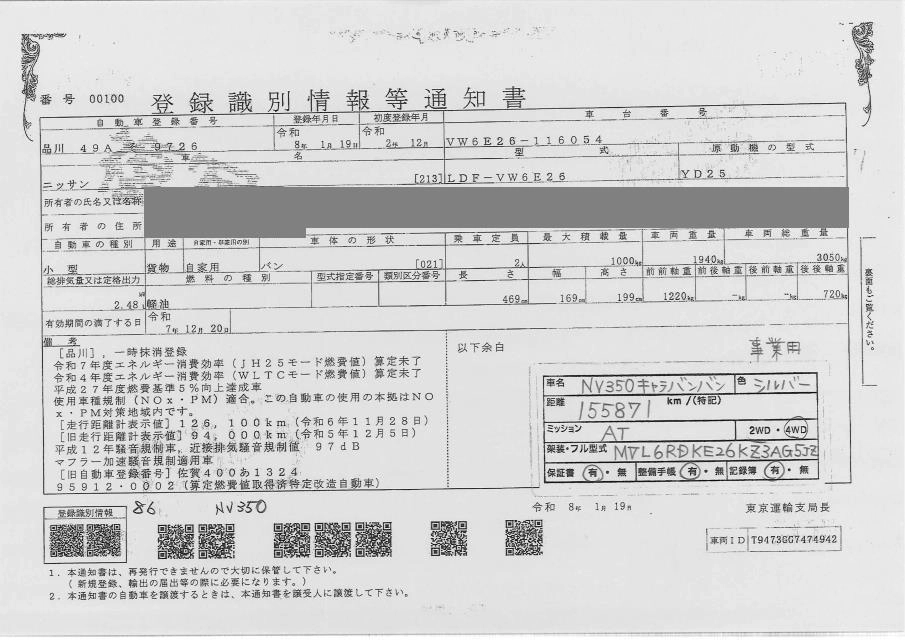 番号 00100 登録識別情報等通知書
自動車登録番号 登録年月日 初度登録年月 車台番号
品川 49A 9726 令和 8年 1月 19日 令和 2年 12月 VW6E26-116054
車名 型式 原動機の型式
ニッサン [213] LDF-VW6E26 YD25
所有者の氏名又は名称
所有者の住所
自動車の種別 用途 自家用・事業用の別 車体の形状 乗車定員 最大積載量 車両重量 車両総重量
小型 貨物 自家用 バン [021] 2人 1000kg 1940kg 3050kg
総排気量又は定格出力 燃料の種別 型式指定番号 類別区分番号 長さ 幅 高さ 前前軸重 前後軸重 後前軸重 後後軸重
2.48 軽油 469cm 169cm 199cm 1220kg -kg -kg 720kg
有効期間の満了する日 令和 7年 12月 20日
備考
[品川],一時抹消登録
令和7年度エネルギー消費効率(JH25モード燃費値)算定未了
令和4年度エネルギー消費効率(WLTCモード燃費値)算定未了
平成27年度燃費基準5%向上達成車
使用車種規制(NOx・PM)適合。この自動車の使用の本拠はNO
x・PM対策地域内です。
[走行距離計表示値]126,100km(令和6年11月28日)
[旧走行距離計表示値]94,000km(令和5年12月5日)
平成12年騒音規制車,近接排気騒音規制値 97dB
マフラー加速騒音規制適用車
[旧自動車登録番号]佐賀400あ1324
95912・0002(算定燃費値取得済特定改造自動車)
以下余白
事業用
車名 NV350キャラバンバン 色 シルバー
距離 155871 km/(特記)
ミッション AT 2WD・4WD
架装・フル型式 MVL6RDKE26KZ3AG5JZ
保証書 有・無 整備手帳 有・無 記録簿 有・無
裏面もご覧ください。
令和 8年 1月 19日 東京運輸支局長
登録識別情報 86 NV350
車両ID T9473GG7474942
1.本通知書は、再発行できませんので大切に保管して下さい。
(新規登録、輸出の届出等の際に必要になります。)
2.本通知書の自動車を譲渡するときは、本通知書を譲受人に譲渡して下さい。